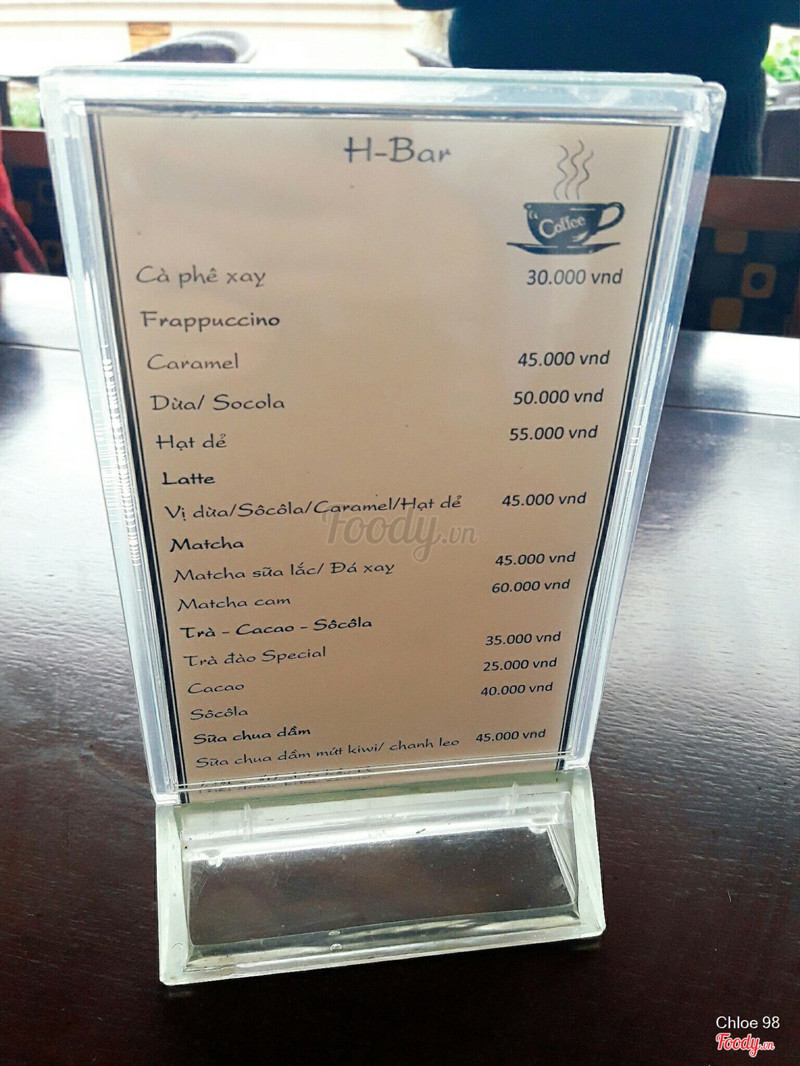 H-Bar
Coffee
Cà phê xay 30.000 vnd
Frappuccino
Caramel 45.000 vnd
Dừa/ Socola 50.000 vnd
Hạt dẻ 55.000 vnd
Latte
Vị dừa/Sôcôla/Caramel/Hạt dẻ 45.000 vnd
Matcha
Matcha sữa lắc/ Đá xay 45.000 vnd
Matcha cam 60.000 vnd
Trà - Cacao - Sôcôla
Trà đào Special 35.000 vnd
Cacao 25.000 vnd
Sôcôla 40.000 vnd
Sữa chua dầm
Sữa chua dầm mứt kiwi/ chanh leo 45.000 vnd
Foody.vn
Chloe 98
Foody.vn